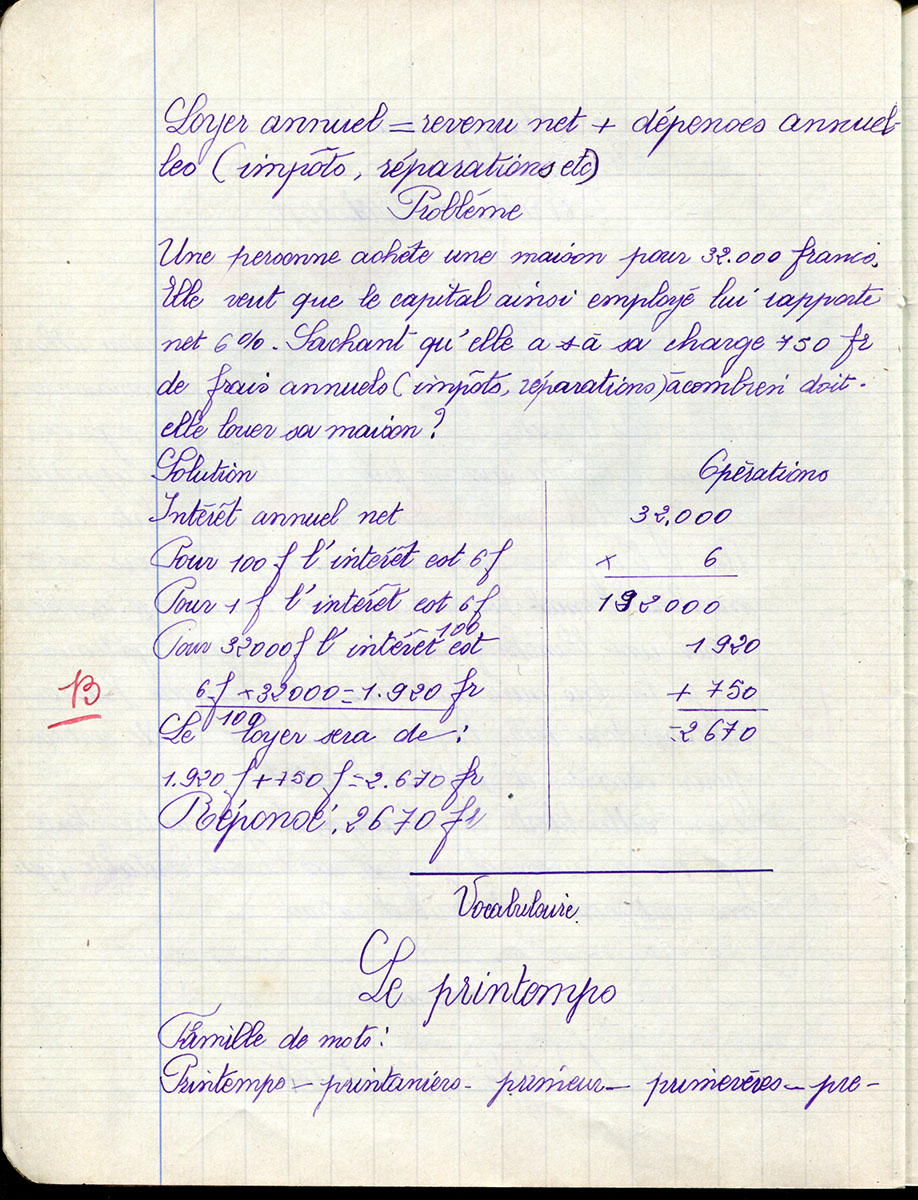 Loyer annuel = revenu net + dépenses annuel-
les (impôts, réparations etc)
Problème
Une personne achète une maison pour 32.000 francs.
Elle veut que le capital ainsi employé lui rapporte
net 6%. Sachant qu'elle a à sa charge 750 fr
de frais annuels (impôts, réparations) à combien doit-
elle louer sa maison?
Solution
Opérations
Intérêt annuel net
Pour 100 f l'intérêt est 6 f
Pour 1 f l'intérêt est 6 f
100
Pour 32000 f l'intérêt est
6 f × 32000 = 1.920 fr
100
Le loyer sera de :
1.920 f + 750 f = 2.670 fr
Réponse : 2670 fr
32.000
× 6
192000
1920
+ 750
=2670
B
Vocabulaire
Le printemps
Famille de mots :
Printemps – printaniers – primeur – primevères – pre-